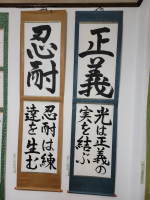 正義
光は正義の
実を結ぶ
忍耐
忍耐は練
達を生む